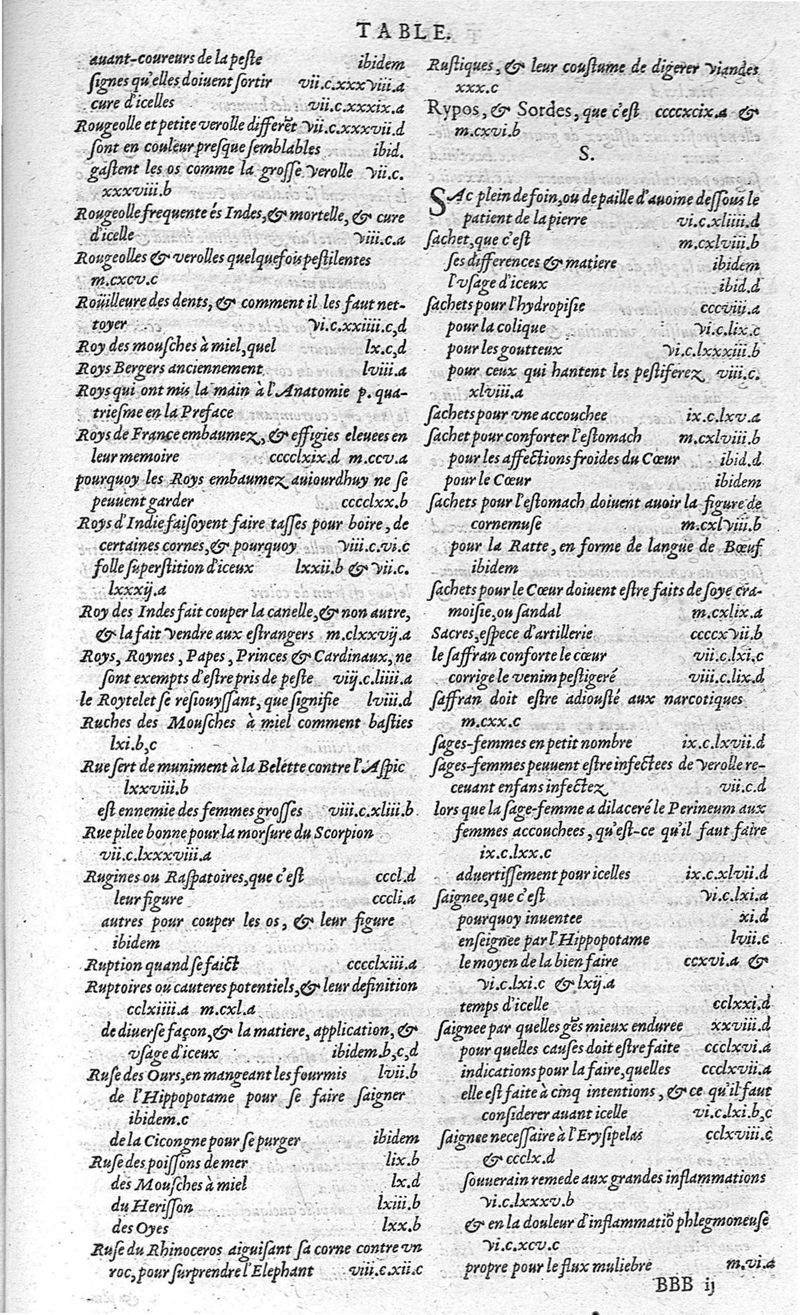 TABLE.
auant-coureurs de la peste ibidem
signes qu'elles doiuent sortir vii.c.xxxviii.a
cure d'icelles vii.c.xxxix.a
Rougeolle et petite verolle differẽt vii.c.xxxvii.d
sont en couleur presque semblables ibid.
gastent les os comme la grosse verolle vii.c.
xxxviii.b
Rougeolle frequente és Indes, & mortelle, & cure
d'icelle viii.c.a
Rougeolles & verolles quelquefois pestilentes
m.cxcv.c
Roüilleure des dents, & comment il les faut net-
toyer vi.c.xxiiii.c,d
Roy des mousches à miel, quel lx.c,d
Roys Bergers anciennement lviii.a
Roys qui ont mis la main à l'Anatomie p. qua-
triesme en la Preface
Roys de France embaumez, & effigies eleuees en
leur memoire cccclxix.d m.ccv.a
pourquoy les Roys embaumez auiourdhuy ne se
peuuent garder cccclxx.b
Roys d'Indie faisoyent faire tasses pour boire, de
certaines cornes, & pourquoy viii.c.vi.c
folle superstition d'iceux lxxii.b & vii.c.
lxxxij.a
Roy des Indes fait couper la canelle, & non autre,
& la fait vendre aux estrangers m.clxxvij.a
Roys, Roynes, Papes, Princes & Cardinaux, ne
sont exempts d'estre pris de peste viij.c.liiii.a
le Roytelet se resiouyssant, que signifie lviii.d
Ruches des Mousches à miel comment basties
lxi.b,c
Rue sert de muniment à la Belette contre l'Aspic
lxxviii.b
est ennemie des femmes grosses viii.c.xliii.b
Rue pilee bonne pour la morsure du Scorpion
vii.c.lxxxviii.a
Rugines ou Raspatoires, que c'est cccl.d
leur figure cccli.a
autres pour couper les os, & leur figure
ibidem
Ruption quand se faict cccclxiii.a
Ruptoires ou cauteres potentiels, & leur definition
cclxiiii.a m.cxl.a
de diuerse façon, & la matiere, application, &
vsage d'iceux ibidem.b,c,d
Ruse des Ours, en mangeant les fourmis lvii.b
de l'Hippopotame pour se faire saigner
ibidem.c
de la Cicongne pour se purger ibidem
Ruse des poissons de mer lix.b
des Mousches à miel lx.d
du Herisson lxiii.b
des Oyes lxx.b
Ruse du Rhinoceros aiguisant sa corne contre vn
roc, pour surprendre l'Elephant viii.c.xii.c
Rustiques, & leur coustume de digerer viandes
xxx.c
Rypos, & Sordes, que c'est ccccxcix.a &
m.cxvi.b
S.
SAc plein de foin, ou de paille d'auoine dessous le
patient de la pierre vi.c.xliiii.d
sachet, que c'est m.cxlviii.b
ses differences & matiere ibidem
l'vsage d'iceux ibid.d
sachets pour l'hydropisie cccviii.a
pour la colique vi.c.lix.c
pour les goutteux vi.c.lxxxiii.b
pour ceux qui hantent les pestiferez viii.c.
xlviii.a
sachets pour vne accouchee ix.c.lxv.a
sachet pour conforter l'estomach m.cxlviii.b
pour les affections froides du Cœur ibid.d
pour le Cœur ibidem
sachets pour l'estomach doiuent auoir la figure de
cornemuse m.cxlviii.b
pour la Ratte, en forme de langue de Bœuf
ibidem
sachets pour le Cœur doiuent estre faits de soye cra-
moisie, ou sandal m.cxlix.a
Sacres, espece d'artillerie ccccxvii.b
le saffran conforte le cœur vii.c.lxi.c
corrige le venim pestigeré viii.c.lix.d
saffran doit estre adiousté aux narcotiques
m.cxx.c
sages-femmes en petit nombre ix.c.lxvii.d
sages-femmes peuuent estre infectees de verolle re-
ceuant enfans infectez vii.c.d
lors que la sage-femme a dilaceré le Perineum aux
femmes accouchees, qu'est-ce qu'il faut faire
ix.c.lxx.c
aduertissement pour icelles ix.c.xlvii.d
saignee, que c'est vi.c.lxi.a
pourquoy inuentee xi.d
enseignee par l'Hippopotame lvii.c
le moyen de la bien faire ccxvi.a &
vi.c.lxi.c & lxij.a
temps d'icelle cclxxi.d
saignee par quelles gẽs mieux enduree xxviii.d
pour quelles causes doit estre faite ccclxvi.a
indications pour la faire, quelles ccclxvii.a
elle est faite à cinq intentions, & ce qu'il faut
considerer auant icelle vi.c.lxi.b,c
saignee necessaire à l'Erysipelas cclxviii.c
& ccclx.d
souuerain remede aux grandes inflammations
vi.c.lxxxv.b
& en la douleur d'inflammatiõ phlegmoneuse
vi.c.xcv.c
propre pour le flux muliebre m.vi.a
BBB ij